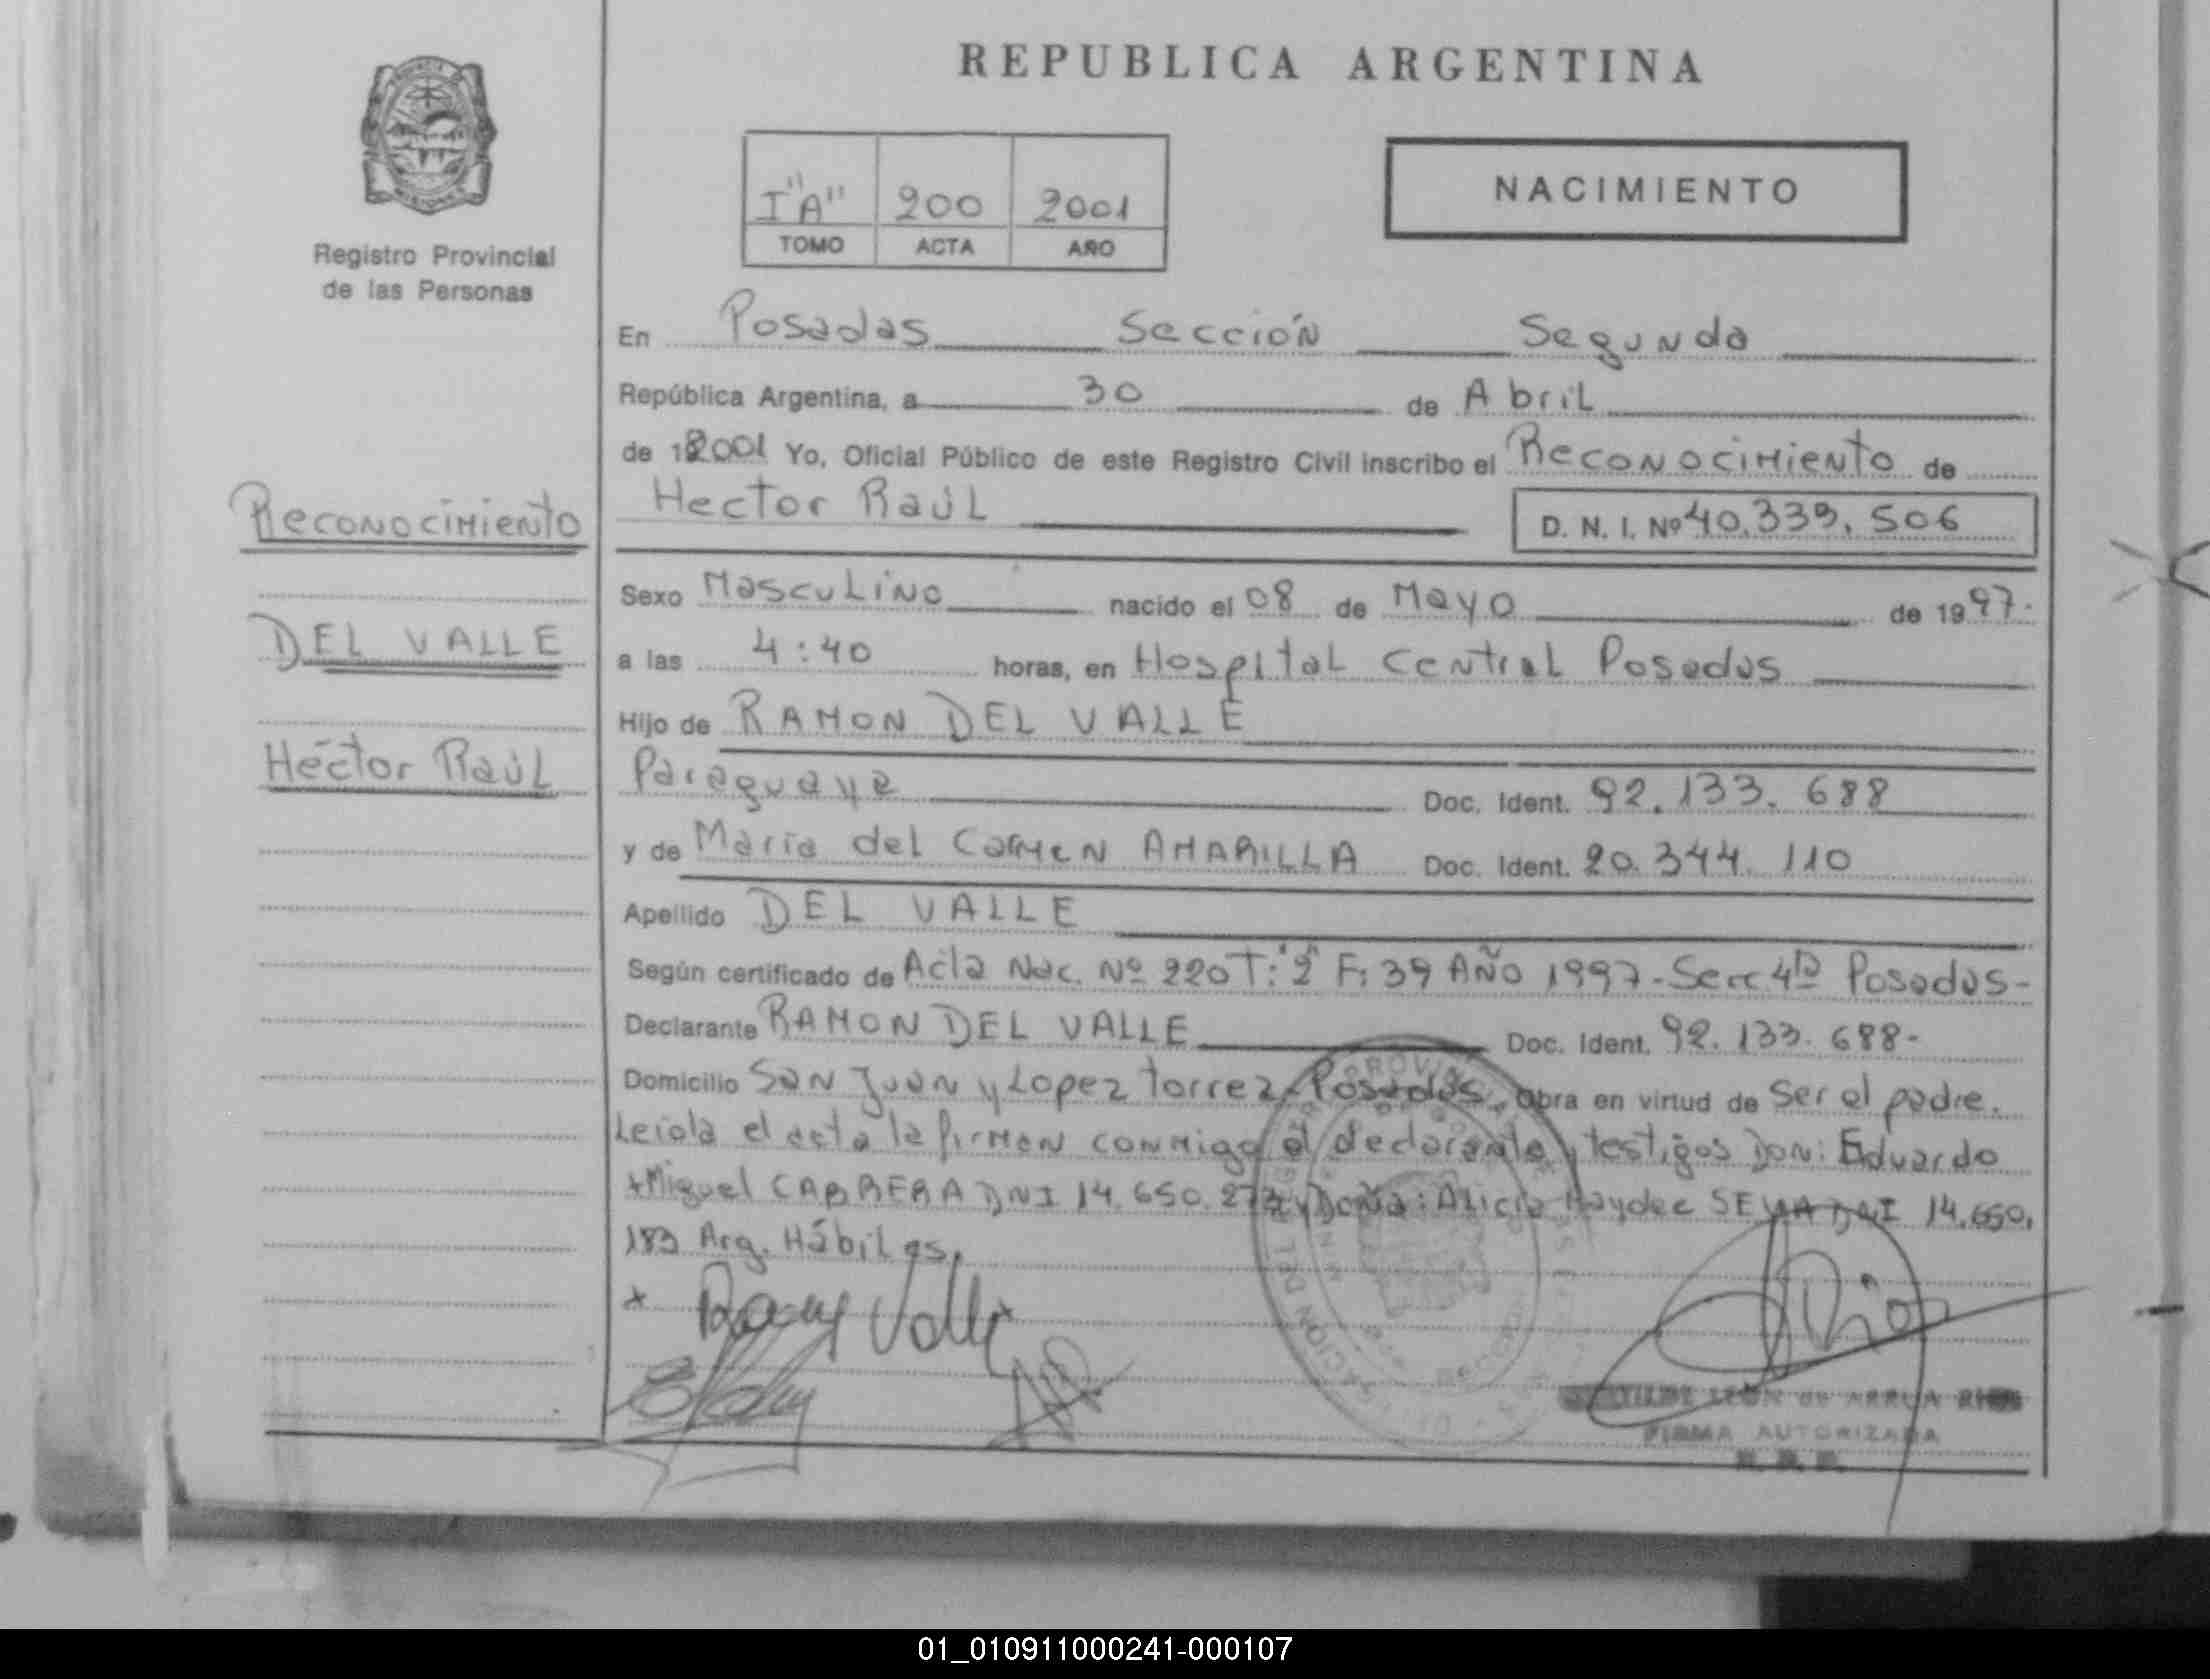 REPUBLICA ARGENTINA
I "A" 200 2001
TOMO ACTA AÑO
NACIMIENTO
Registro Provincial
de las Personas
En Posadas Sección Segunda
República Argentina, a 30 de Abril
de 2001 Yo, Oficial Público de este Registro Civil inscribo el Reconocimiento de
Hector Raúl D. N. I. Nº 40.339.506
Reconocimiento
DEL VALLE
Héctor Raúl
Sexo Masculino nacido el 08 de Mayo de 1997.
a las 4:40 horas, en Hospital Central Posadas
Hijo de RAMON DEL VALLE
Paraguaya Doc. Ident. 92.133.688
y de María del Carmen AMARILLA Doc. Ident. 20.344.110
Apellido DEL VALLE
Según certificado de Acta Nac. Nº 220 T: "2" F: 39 AÑO 1997.- Secc 4ta Posadas-
Declarante RAMON DEL VALLE Doc. Ident. 92.133.688-
Domicilio San Juan y Lopez Torrez Posadas. Obra en virtud de ser el padre.
Leiola el acta la firman conmigo el declarante y testigos Don: Eduardo
Miguel CABRERA DNI 14.650. y Doña: Alicia Haydee DNI 14.650.
183 Arg. Hábiles.
LEON de ARRUA RIOS
FIRMA AUTORIZADA
01_010911000241-000107